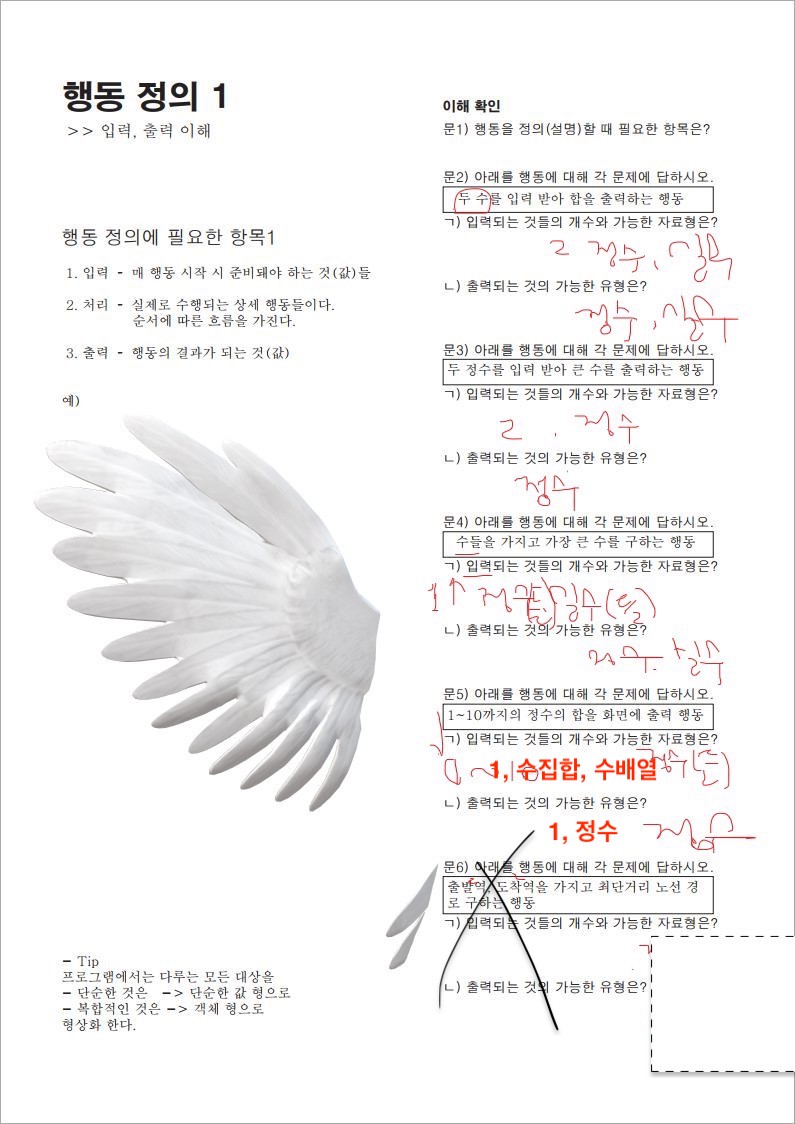 행동 정의 1
>> 입력, 출력 이해
행동 정의에 필요한 항목1
1. 입력 - 매 행동 시작 시 준비돼야 하는 것(값)들
2. 처리 - 실제로 수행되는 상세 행동들이다.
순서에 따른 흐름을 가진다.
3. 출력 - 행동의 결과가 되는 것(값)
예)
- Tip
프로그램에서는 다루는 모든 대상을
- 단순한 것은 -> 단순한 값 형으로
- 복합적인 것은 -> 객체 형으로
형상화 한다.
이해 확인
문1) 행동을 정의(설명)할 때 필요한 항목은?
문2) 아래를 행동에 대해 각 문제에 답하시오.
두 수를 입력 받아 합을 출력하는 행동
ㄱ) 입력되는 것들의 개수와 가능한 자료형은?
2 정수, 실수
ㄴ) 출력되는 것의 가능한 유형은?
정수, 실수
문3) 아래를 행동에 대해 각 문제에 답하시오.
두 정수를 입력 받아 큰 수를 출력하는 행동
ㄱ) 입력되는 것들의 개수와 가능한 자료형은?
2, 정수
ㄴ) 출력되는 것의 가능한 유형은?
정수
문4) 아래를 행동에 대해 각 문제에 답하시오.
수들을 가지고 가장 큰 수를 구하는 행동
ㄱ) 입력되는 것들의 개수와 가능한 자료형은?
실수(들)
ㄴ) 출력되는 것의 가능한 유형은?
정수, 실수
문5) 아래를 행동에 대해 각 문제에 답하시오.
1~10까지의 정수의 합을 화면에 출력 행동
ㄱ) 입력되는 것들의 개수와 가능한 자료형은?
1, 수집합, 수배열 정수(들)
ㄴ) 출력되는 것의 가능한 유형은?
1, 정수 정수
문6) 아래를 행동에 대해 각 문제에 답하시오.
출발역, 도착역을 가지고 최단거리 노선 경
로 구하는 행동
ㄱ) 입력되는 것들의 개수와 가능한 자료형은?
ㄴ) 출력되는 것의 가능한 유형은?